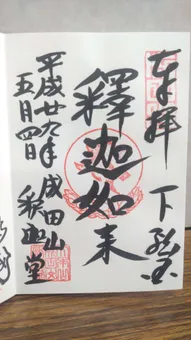 奉拝 下総国
釋迦如来
平成廿九年
五月四日
成田山
釈迦堂